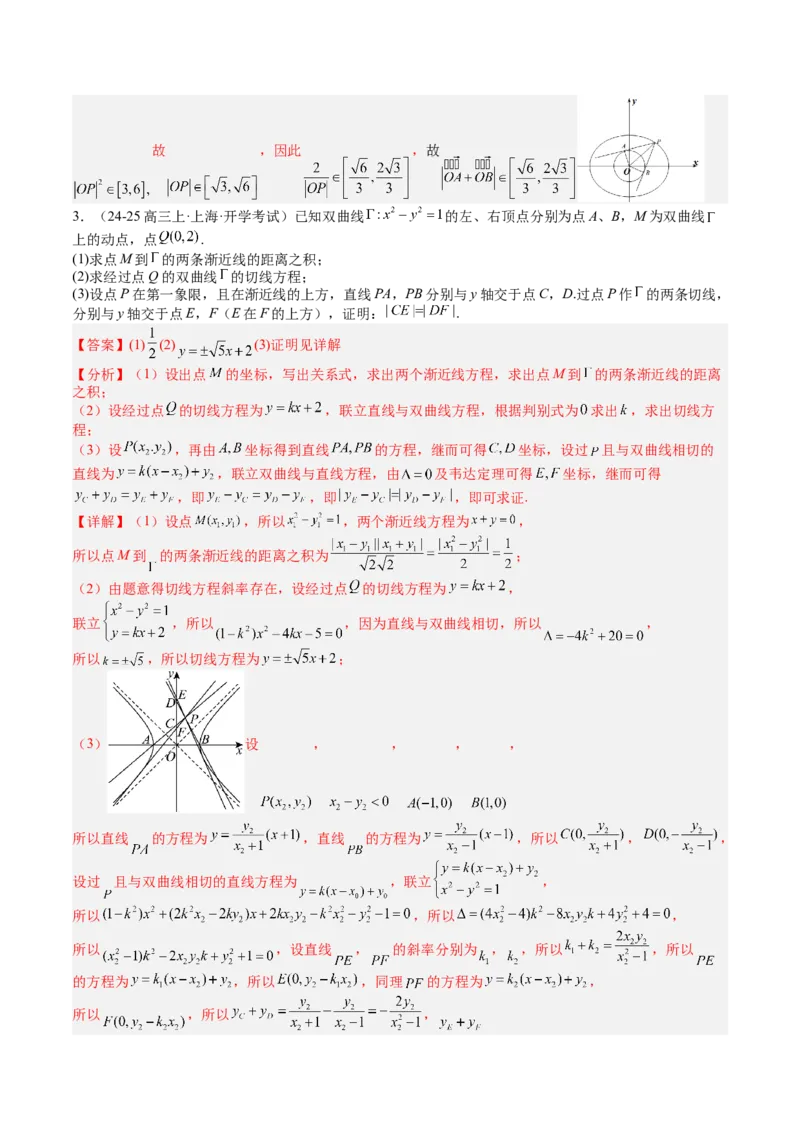 y
A
P
x
O
B
故 ，因此 ，故
|OP|²∈[3,6]， |OP|∈[√3,√6] 2/|OP|∈[√6/3,2√3/3] |OA+OB|∈[√6/3,2√3/3]
3．（24-25高三上·上海·开学考试）已知双曲线Γ:x²−y²=1的左、右顶点分别为点A、B，M为双曲线Γ
上的动点，点Q(0,2)．
(1)求点M到Γ的两条渐近线的距离之积；
(2)求经过点Q的双曲线Γ的切线方程；
(3)设点P在第一象限，且在渐近线的上方，直线PA，PB分别与y轴交于点C，D.过点P作Γ的两条切线，
分别与y轴交于点E，F（E在F的上方），证明：|CE|=|DF|．
【答案】(1) 1/2 (2) y=±√5x+2 (3)证明见详解
【分析】（1）设出点M的坐标，写出关系式，求出两个渐近线方程，求出点M到Γ的两条渐近线的距离
之积；
（2）设经过点Q的切线方程为y=kx+2，联立直线与双曲线方程，根据判别式为0求出k，求出切线方
程；
（3）设P(x₂.y₂)，再由A,B坐标得到直线PA,PB的方程，继而可得C,D坐标，设过P且与双曲线相切的
直线为y=k(x−x₂)+y₂，联立双曲线与直线方程，由Δ=0及韦达定理可得E,F坐标，继而可得
y_C+y_D=y_E+y_F，即y_E−y_C=y_D−y_F，即|y_E−y_C|=|y_D−y_F|，即可求证.
【详解】（1）设点M(x₁,y₁)，所以x₁²−y₁²=1，两个渐近线方程为x±y=0，
所以点M到Γ的两条渐近线的距离之积为|x₁−y₁||x₁+y₁|/√2√2=|x₁²−y₁²|/2=1/2；
（2）由题意得切线方程斜率存在，设经过点Q的切线方程为y=kx+2，
联立{x²−y²=1 y=kx+2，所以(1−k²)x²−4kx−5=0，因为直线与双曲线相切，所以Δ=−4k²+20=0，
所以k=±√5，所以切线方程为y=±√5x+2；
y
E
D
C
P
F
A
B
O
x
（3） 设 ， ， ， ，
P(x₂,y₂) x₂−y₂<0 A(−1,0) B(1,0)
所以直线PA的方程为y=y₂/(x₂+1)(x+1)，直线PB的方程为y=y₂/(x₂−1)(x−1)，所以C(0,y₂/(x₂+1))，D(0,−y₂/(x₂−1))，
设过P且与双曲线相切的直线方程为y=k(x−x₀)+y₀，联立{y=k(x−x₂)+y₂ x²−y²=1，
所以(1−k²)x²+(2k²x₂−2ky₂)x+2kx₂y₂−k²x₂²−y₂²−1=0，所以Δ=(4x₂²−4)k²−8x₂y₂k+4y₂²+4=0，
所以(x₂²−1)k²−2x₂y₂k+y₂²+1=0，设直线PE，PF的斜率分别为k₁，k₂，所以k₁+k₂=2x₂y₂/(x₂²−1)，所以PE
的方程为y=k₁(x−x₂)+y₂，所以E(0,y₂−k₁x₂)，同理PF的方程为y=k₂(x−x₂)+y₂，
所以F(0,y₂−k₂x₂)，所以y_C+y_D=y₂/(x₂+1)−y₂/(x₂−1)=−2y₂/(x₂²−1)，y_E+y_F